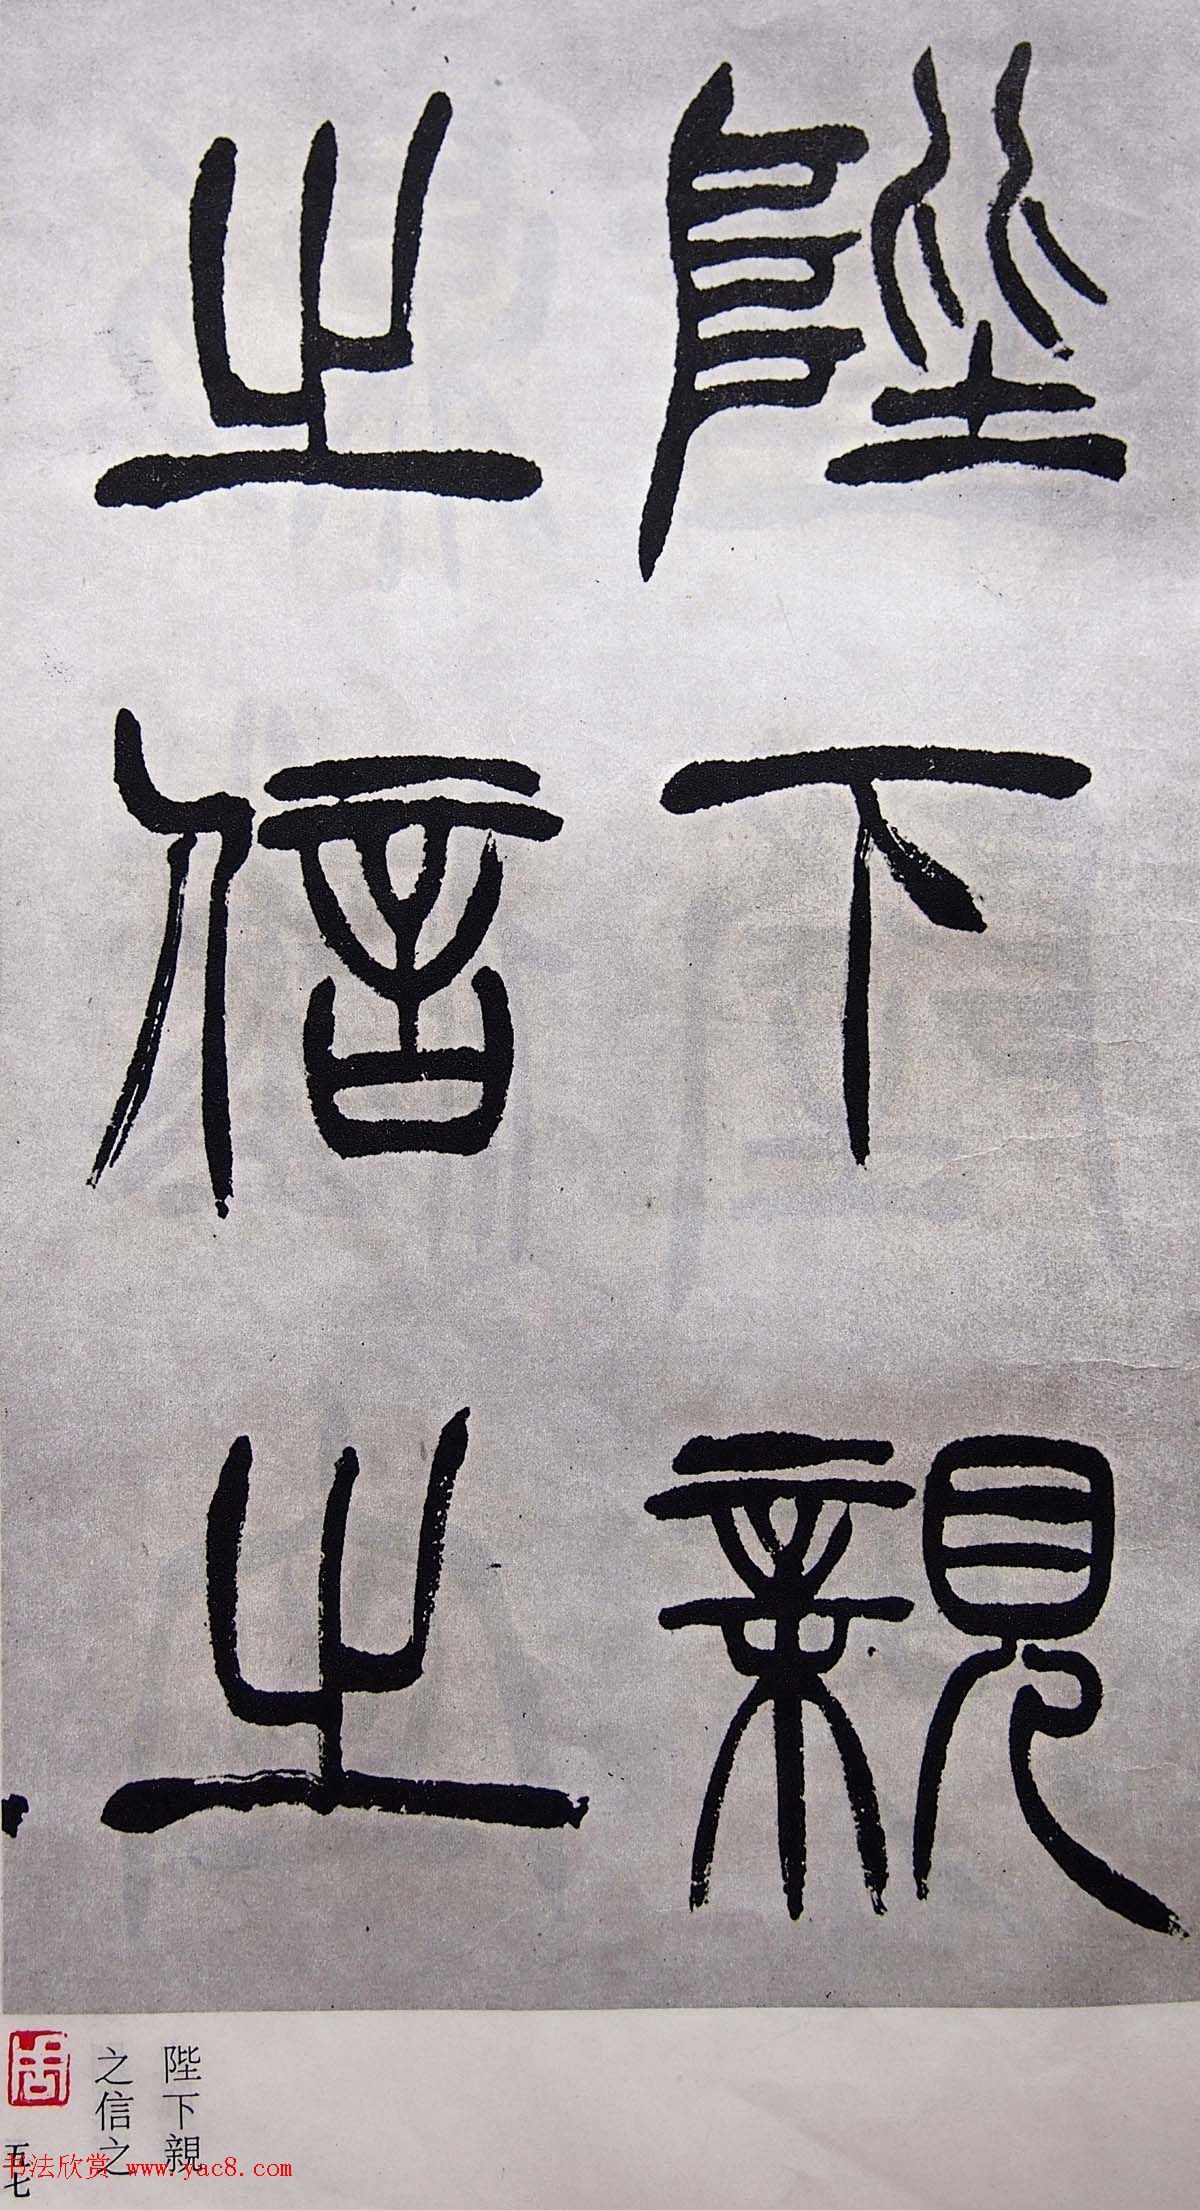 陛下親
之信之
陛下親
之信之
五七
书法欣赏 www.yac8.com